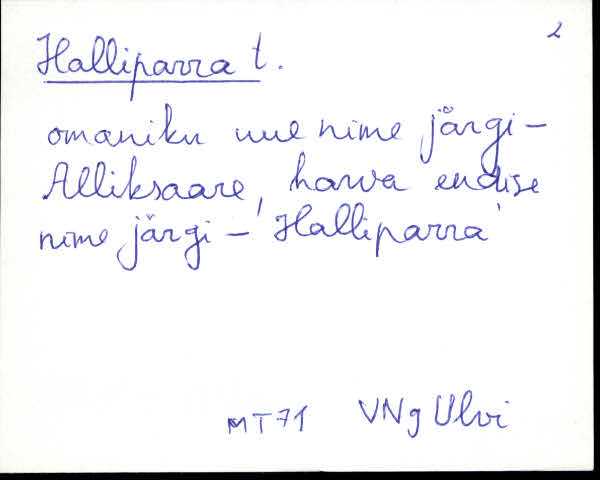 2
Halliparra t.
omaniku uue nime järgi –
Alliksaare, harva endise
nime järgi – 'Halliparra'
MT71 VNg Ulvi